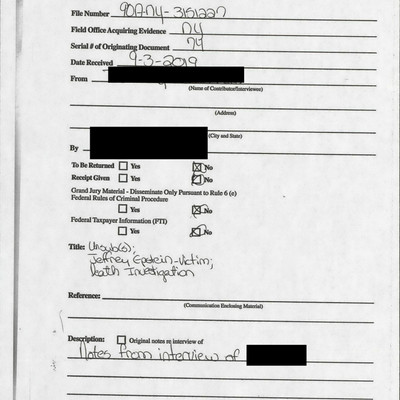 File Number 90A-NY-3151227
Field Office Acquiring Evidence NY
Serial # of Originating Document 74
Date Received 9-3-2019
From
(Name of Contributor/Interviewee)
(Address)
(City and State)
By
To Be Returned Yes No
Receipt Given Yes No
Grand Jury Material - Disseminate Only Pursuant to Rule 6 (e)
Federal Rules of Criminal Procedure
Yes No
Federal Taxpayer Information (FTI)
Yes No
Title: Unsub(s);
Jeffrey Epstein-Victim;
Death Investigation
Reference:
(Communication Enclosing Material)
Description: Original notes re interview of
Notes from interview of